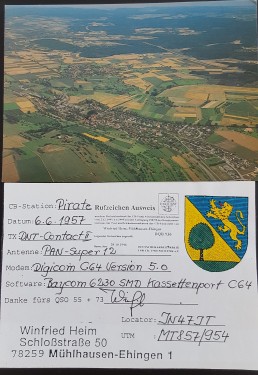 CB-Station: Pirate
Rufzeichen Ausweis
Datum: 6.6.1957
TX: DNT-Contact II
Antenne: PAN-Super 12
Modem: Digicom C64 Version 5.0
Software: Baycom 6230 SMD Kassettenport C64
Danke fürs QSO 55 + 73
Locator: JN47JT
Winfried Heim
Schloßstraße 50
UTM MT857/954
78259 Mühlhausen-Ehingen 1